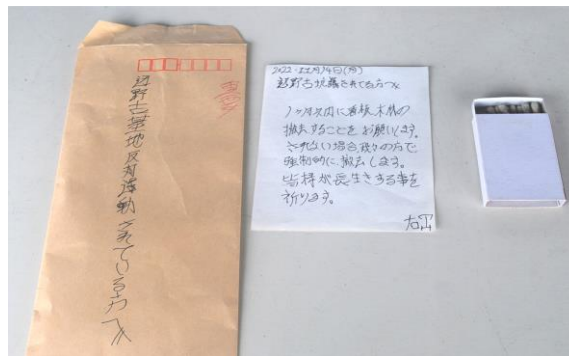 辺野古基地反対運動されている方へ
2022.11月14日(月)
辺野古抗議されてる方へ
1ヶ月以内に看板、木材の
撤去することをお願いします。
されない場合、我々の方で
強制的に撤去します。
皆様が長生きする事を
祈ります。